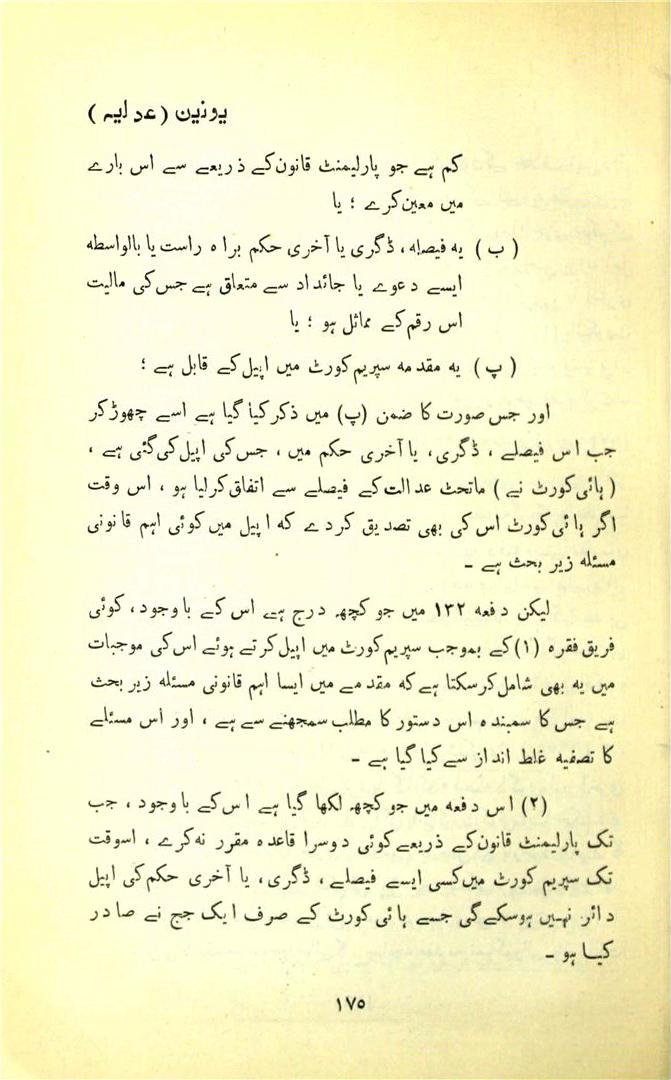 یونین (عدلیہ)
کم ہے جو پارلیمنٹ قانون کے ذریعے سے اس بارے
میں معین کرے ؛ یا
(ب) یہ فیصلہ، ڈگری یا آخری حکم براہ راست یا بالواسطہ
ایسے دعوے یا جائداد سے متعلق ہے جس کی مالیت
اس رقم کے مماثل ہو ؛ یا
(پ) یہ مقدمہ سپریم کورٹ میں اپیل کے قابل ہے ؛
اور جس صورت کا ضمن (پ) میں ذکر کیا گیا ہے اسے چھوڑ کر
جب اس فیصلے ، ڈگری، یا آخری حکم میں ، جس کی اپیل کی گئی ہے ،
(ہائی کورٹ نے) ماتحت عدالت کے فیصلے سے اتفاق کر لیا ہو ، اس وقت
اگر ہائی کورٹ اس کی بھی تصدیق کر دے کہ اپیل میں کوئی اہم قانونی
مسئلہ زیر بحث ہے ۔
لیکن دفعہ ۱۳۲ میں جو کچھ درج ہے اس کے باوجود، کوئی
فریق فقرہ (۱) کے بموجب سپریم کورٹ میں اپیل کرتے ہوئے اس کی موجبات
میں یہ بھی شامل کر سکتا ہے کہ مقدمے میں ایسا اہم قانونی مسئلہ زیر بحث
ہے جس کا سمبندھ اس دستور کا مطلب سمجھنے سے ہے ، اور اس مسئلے
کا تصفیہ غلط انداز سے کیا گیا ہے ۔
(۲) اس دفعہ میں جو کچھ لکھا گیا ہے اس کے باوجود ، جب
تک پارلیمنٹ قانون کے ذریعے کوئی دوسرا قاعدہ مقرر نہ کرے ، اسوقت
تک سپریم کورٹ میں کسی ایسے فیصلے ، ڈگری، یا آخری حکم کی اپیل
دائر نہیں ہو سکے گی جسے ہائی کورٹ کے صرف ایک جج نے صادر
کیا ہو ۔
۱۷۵